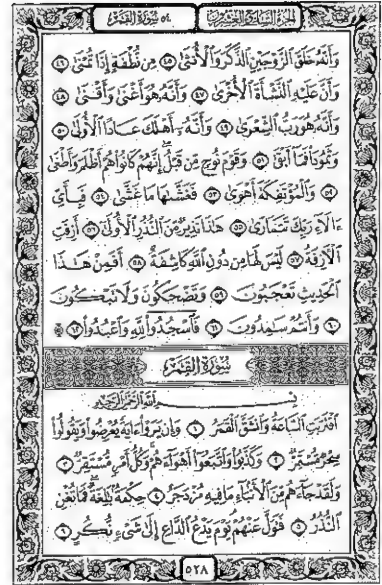 الجزء السابع والعشرون ٥٤ سورة القمر
وَأَنَّهُ خَلَقَ الزَّوْجَيْنِ الذَّكَرَ وَالْأُنثَىٰ ٤٥ مِن نُّطْفَةٍ إِذَا تُمْنَىٰ ٤٦
وَأَنَّ عَلَيْهِ النَّشْأَةَ الْأُخْرَىٰ ٤٧ وَأَنَّهُ هُوَ أَغْنَىٰ وَأَقْنَىٰ ٤٨
وَأَنَّهُ هُوَ رَبُّ الشِّعْرَىٰ ٤٩ وَأَنَّهُ أَهْلَكَ عَادًا الْأُولَىٰ ٥٠
وَثَمُودَا فَمَا أَبْقَىٰ ٥١ وَقَوْمَ نُوحٍ مِّن قَبْلُ إِنَّهُمْ كَانُوا هُمْ أَظْلَمَ وَأَطْغَىٰ
٥٢ وَالْمُؤْتَفِكَةَ أَهْوَىٰ ٥٣ فَغَشَّاهَا مَا غَشَّىٰ ٥٤ فَبِأَيِّ
ءَالَاءِ رَبِّكَ تَتَمَارَىٰ ٥٥ هَٰذَا نَذِيرٌ مِّنَ النُّذُرِ الْأُولَىٰ ٥٦ أَزِفَتِ
الْآزِفَةُ ٥٧ لَيْسَ لَهَا مِن دُونِ اللَّهِ كَاشِفَةٌ ٥٨ أَفَمِنْ هَٰذَا
الْحَدِيثِ تَعْجَبُونَ ٥٩ وَتَضْحَكُونَ وَلَا تَبْكُونَ
٦٠ وَأَنتُمْ سَامِدُونَ ٦١ فَاسْجُدُوا لِلَّهِ وَاعْبُدُوا ۩ ٦٢
سورة القمر
بسم الله الرحمن الرحيم
اقْتَرَبَتِ السَّاعَةُ وَانشَقَّ الْقَمَرُ ١ وَإِن يَرَوْا ءَايَةً يُعْرِضُوا وَيَقُولُوا
سِحْرٌ مُّسْتَمِرٌّ ٢ وَكَذَّبُوا وَاتَّبَعُوا أَهْوَاءَهُمْ وَكُلُّ أَمْرٍ مُّسْتَقِرٌّ ٣
وَلَقَدْ جَاءَهُم مِّنَ الْأَنبَاءِ مَا فِيهِ مُزْدَجَرٌ ٤ حِكْمَةٌ بَالِغَةٌ فَمَا تُغْنِ
النُّذُرُ ٥ فَتَوَلَّ عَنْهُمْ يَوْمَ يَدْعُ الدَّاعِ إِلَىٰ شَيْءٍ نُّكُرٍ ٦
٥٢٨